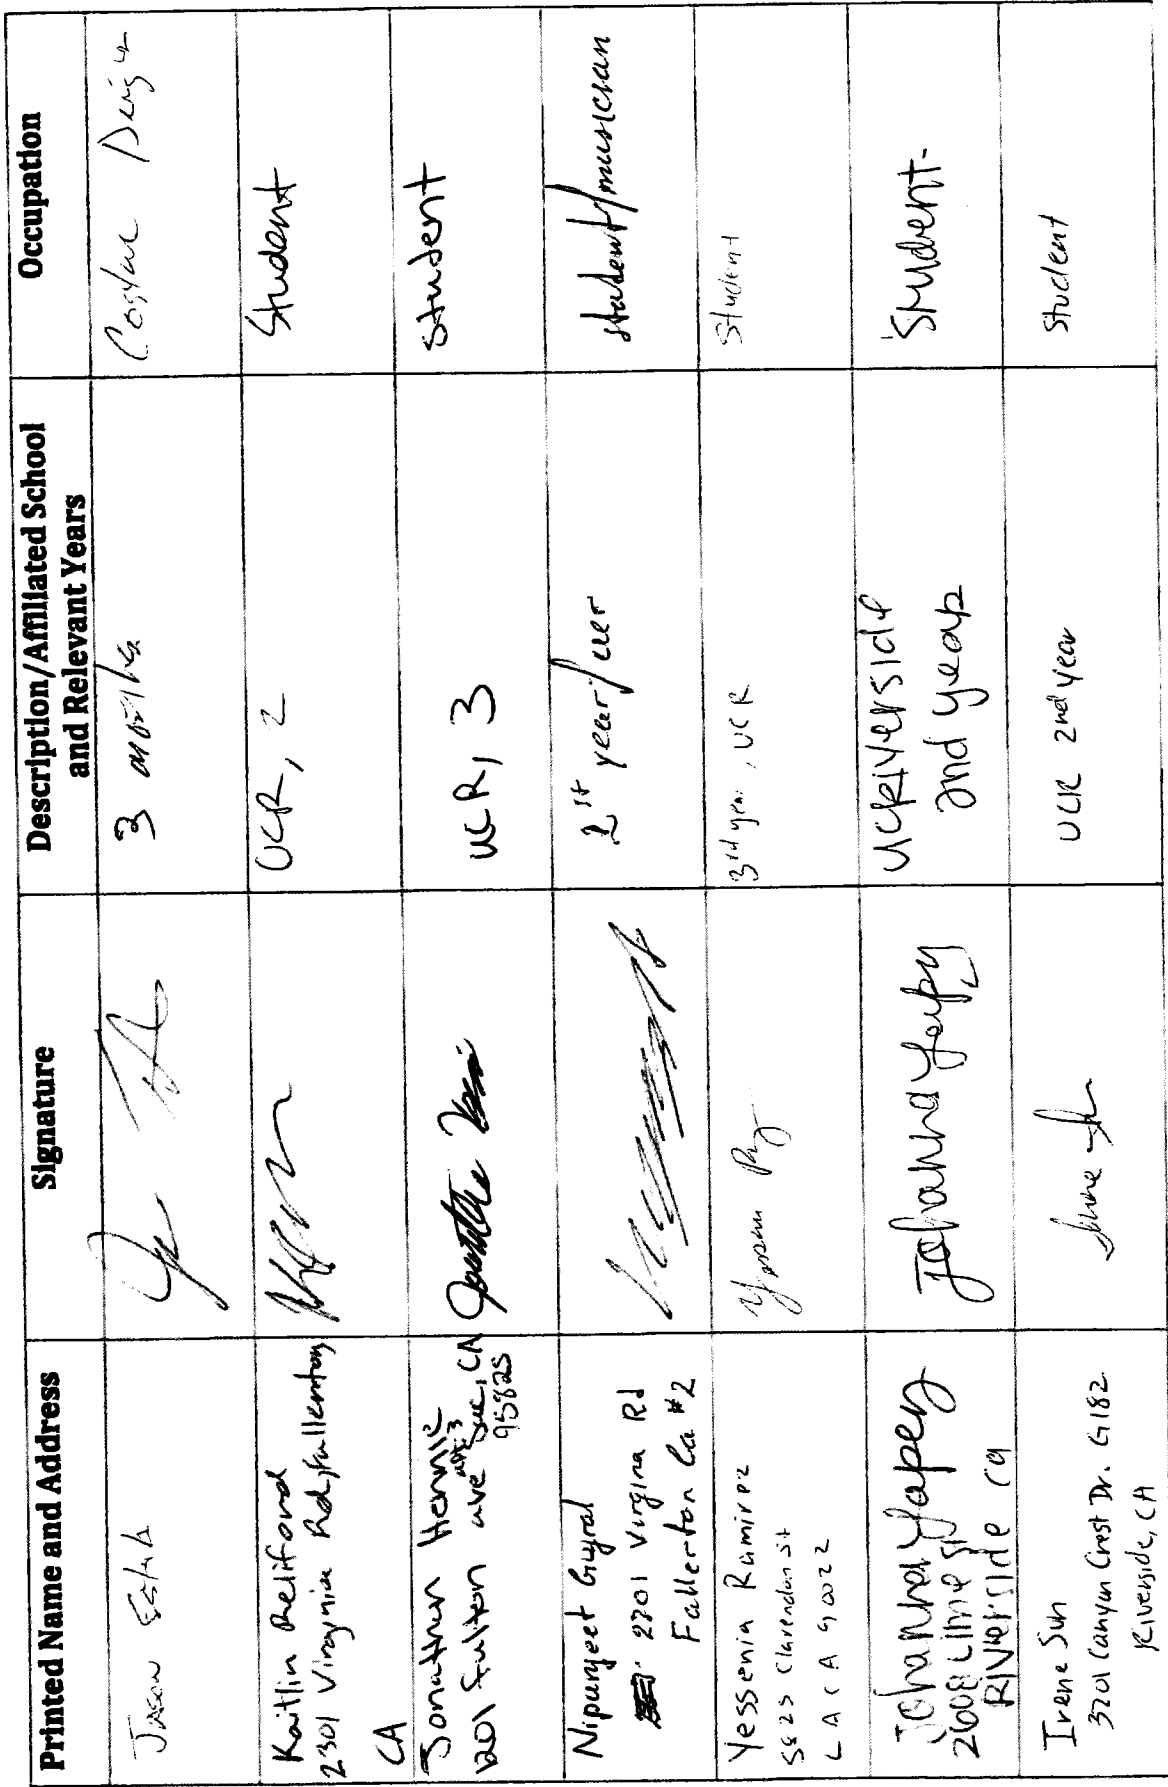 Printed Name and Address
Signature
Description/Affiliated School
and Relevant Years
Occupation
Jason
3 months
Kaitlin Relifond
2301 Virginia Rd, Fullerton,
CA
UCR, 2
Student
Jonathan Hennie
1201 Fulton ave
apt 3
Sac, CA
95825
UCR, 3
student
Nipunjeet Gujral
2201 Virgina Rd
Fullerton Ca #2
1st year/ucr
student/musician
Yessenia Ramirez
LA CA 90022
3rd year, UCR
student
Johanna Yapery
2608 Lime St
Riverside ca
Johanna Yapery
UCRiverside
2nd year
Student.
Irene Sun
3201 Canyon Crest Dr. G182
Riverside, CA
UCR 2nd year
student